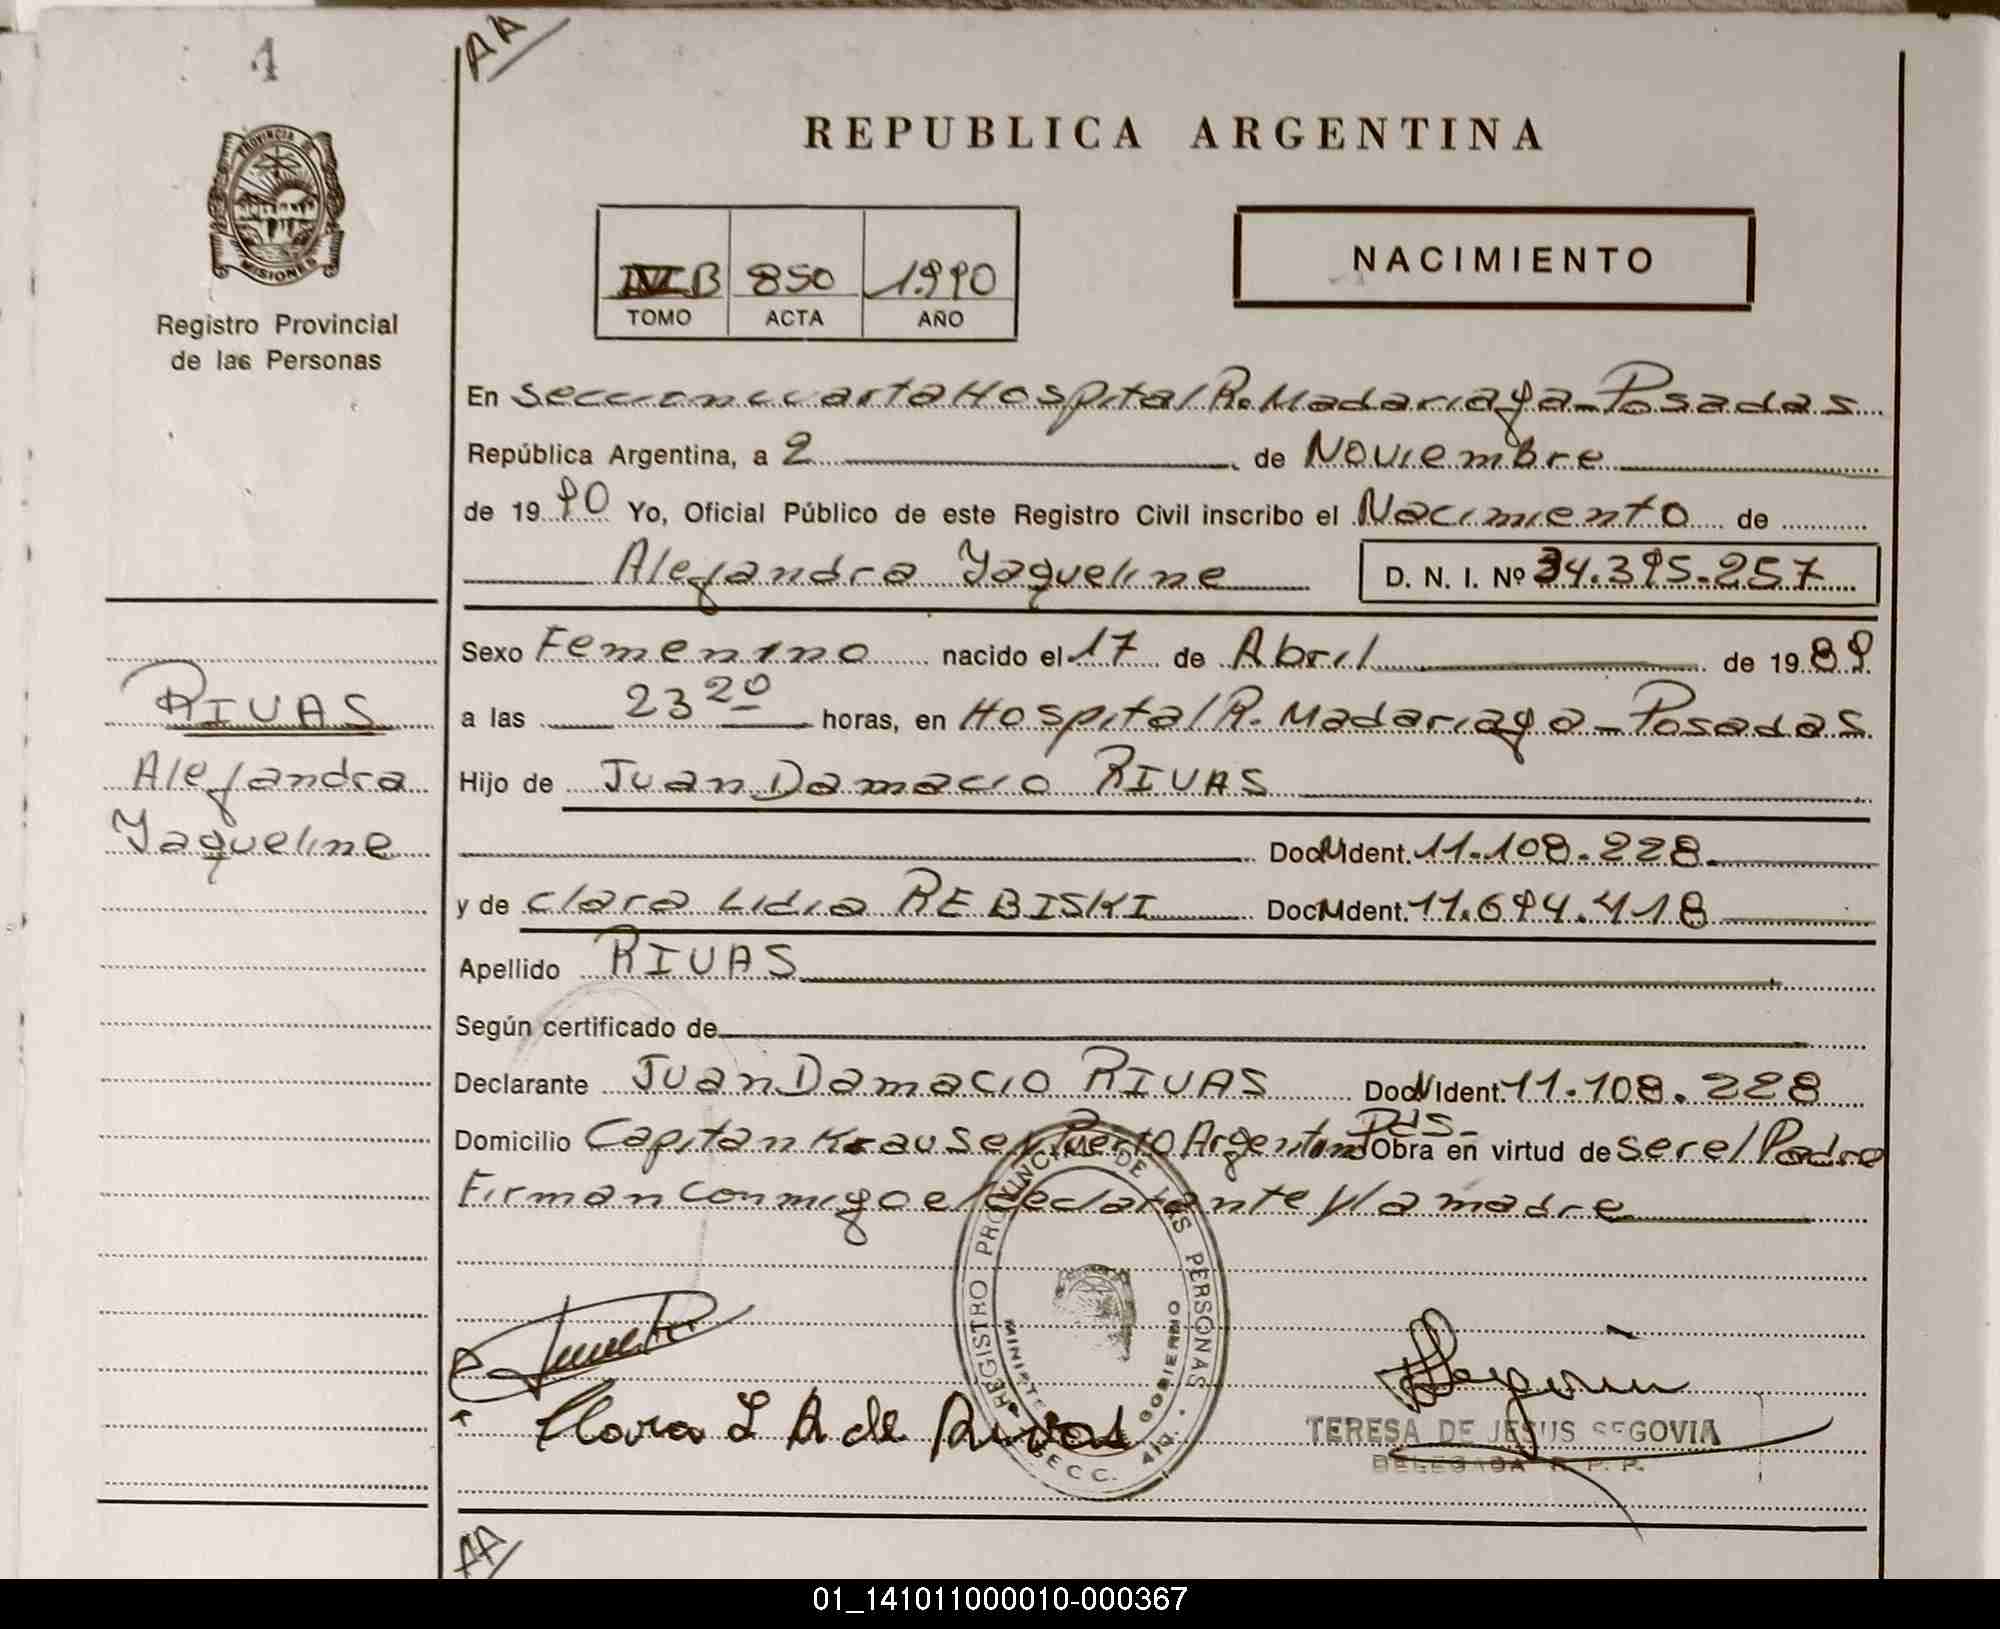 1
AA
PROVINCIA DE
MISIONES
Registro Provincial
de las Personas
REPUBLICA ARGENTINA
B 850 1.990
TOMO ACTA AÑO
NACIMIENTO
En Seccion cuarta Hospital R. Madariaga - Posadas
República Argentina, a 2 de Noviembre
de 1990 Yo, Oficial Público de este Registro Civil inscribo el Nacimiento de
Alejandra Yaqueline D. N. I. Nº 34.395.257
Sexo Femenino nacido el 17 de Abril de 1989
a las 23 20 horas, en Hospital R. Madariaga - Posadas
Hijo de Juan Damacio RIVAS
Doc. Ident. 11.108.228
y de Clara Lidia REBISKI Doc. Ident. 11.694.418
Apellido RIVAS
Según certificado de
Declarante Juan Damacio RIVAS Doc. Ident. 11.108.228
Domicilio Capitan Krause y Puerto Argentino Pds- Obra en virtud de ser el Padre
Firman conmigo el declarante y la madre
RIVAS
Alejandra
Yaqueline
REGISTRO PROVINCIAL DE LAS PERSONAS
GOBIERNO
SECC. 4ta.
Clara L R de Rivas
TERESA DE JESUS SEGOVIA
DELEGADA R. P. P.
AA
01_141011000010-000367